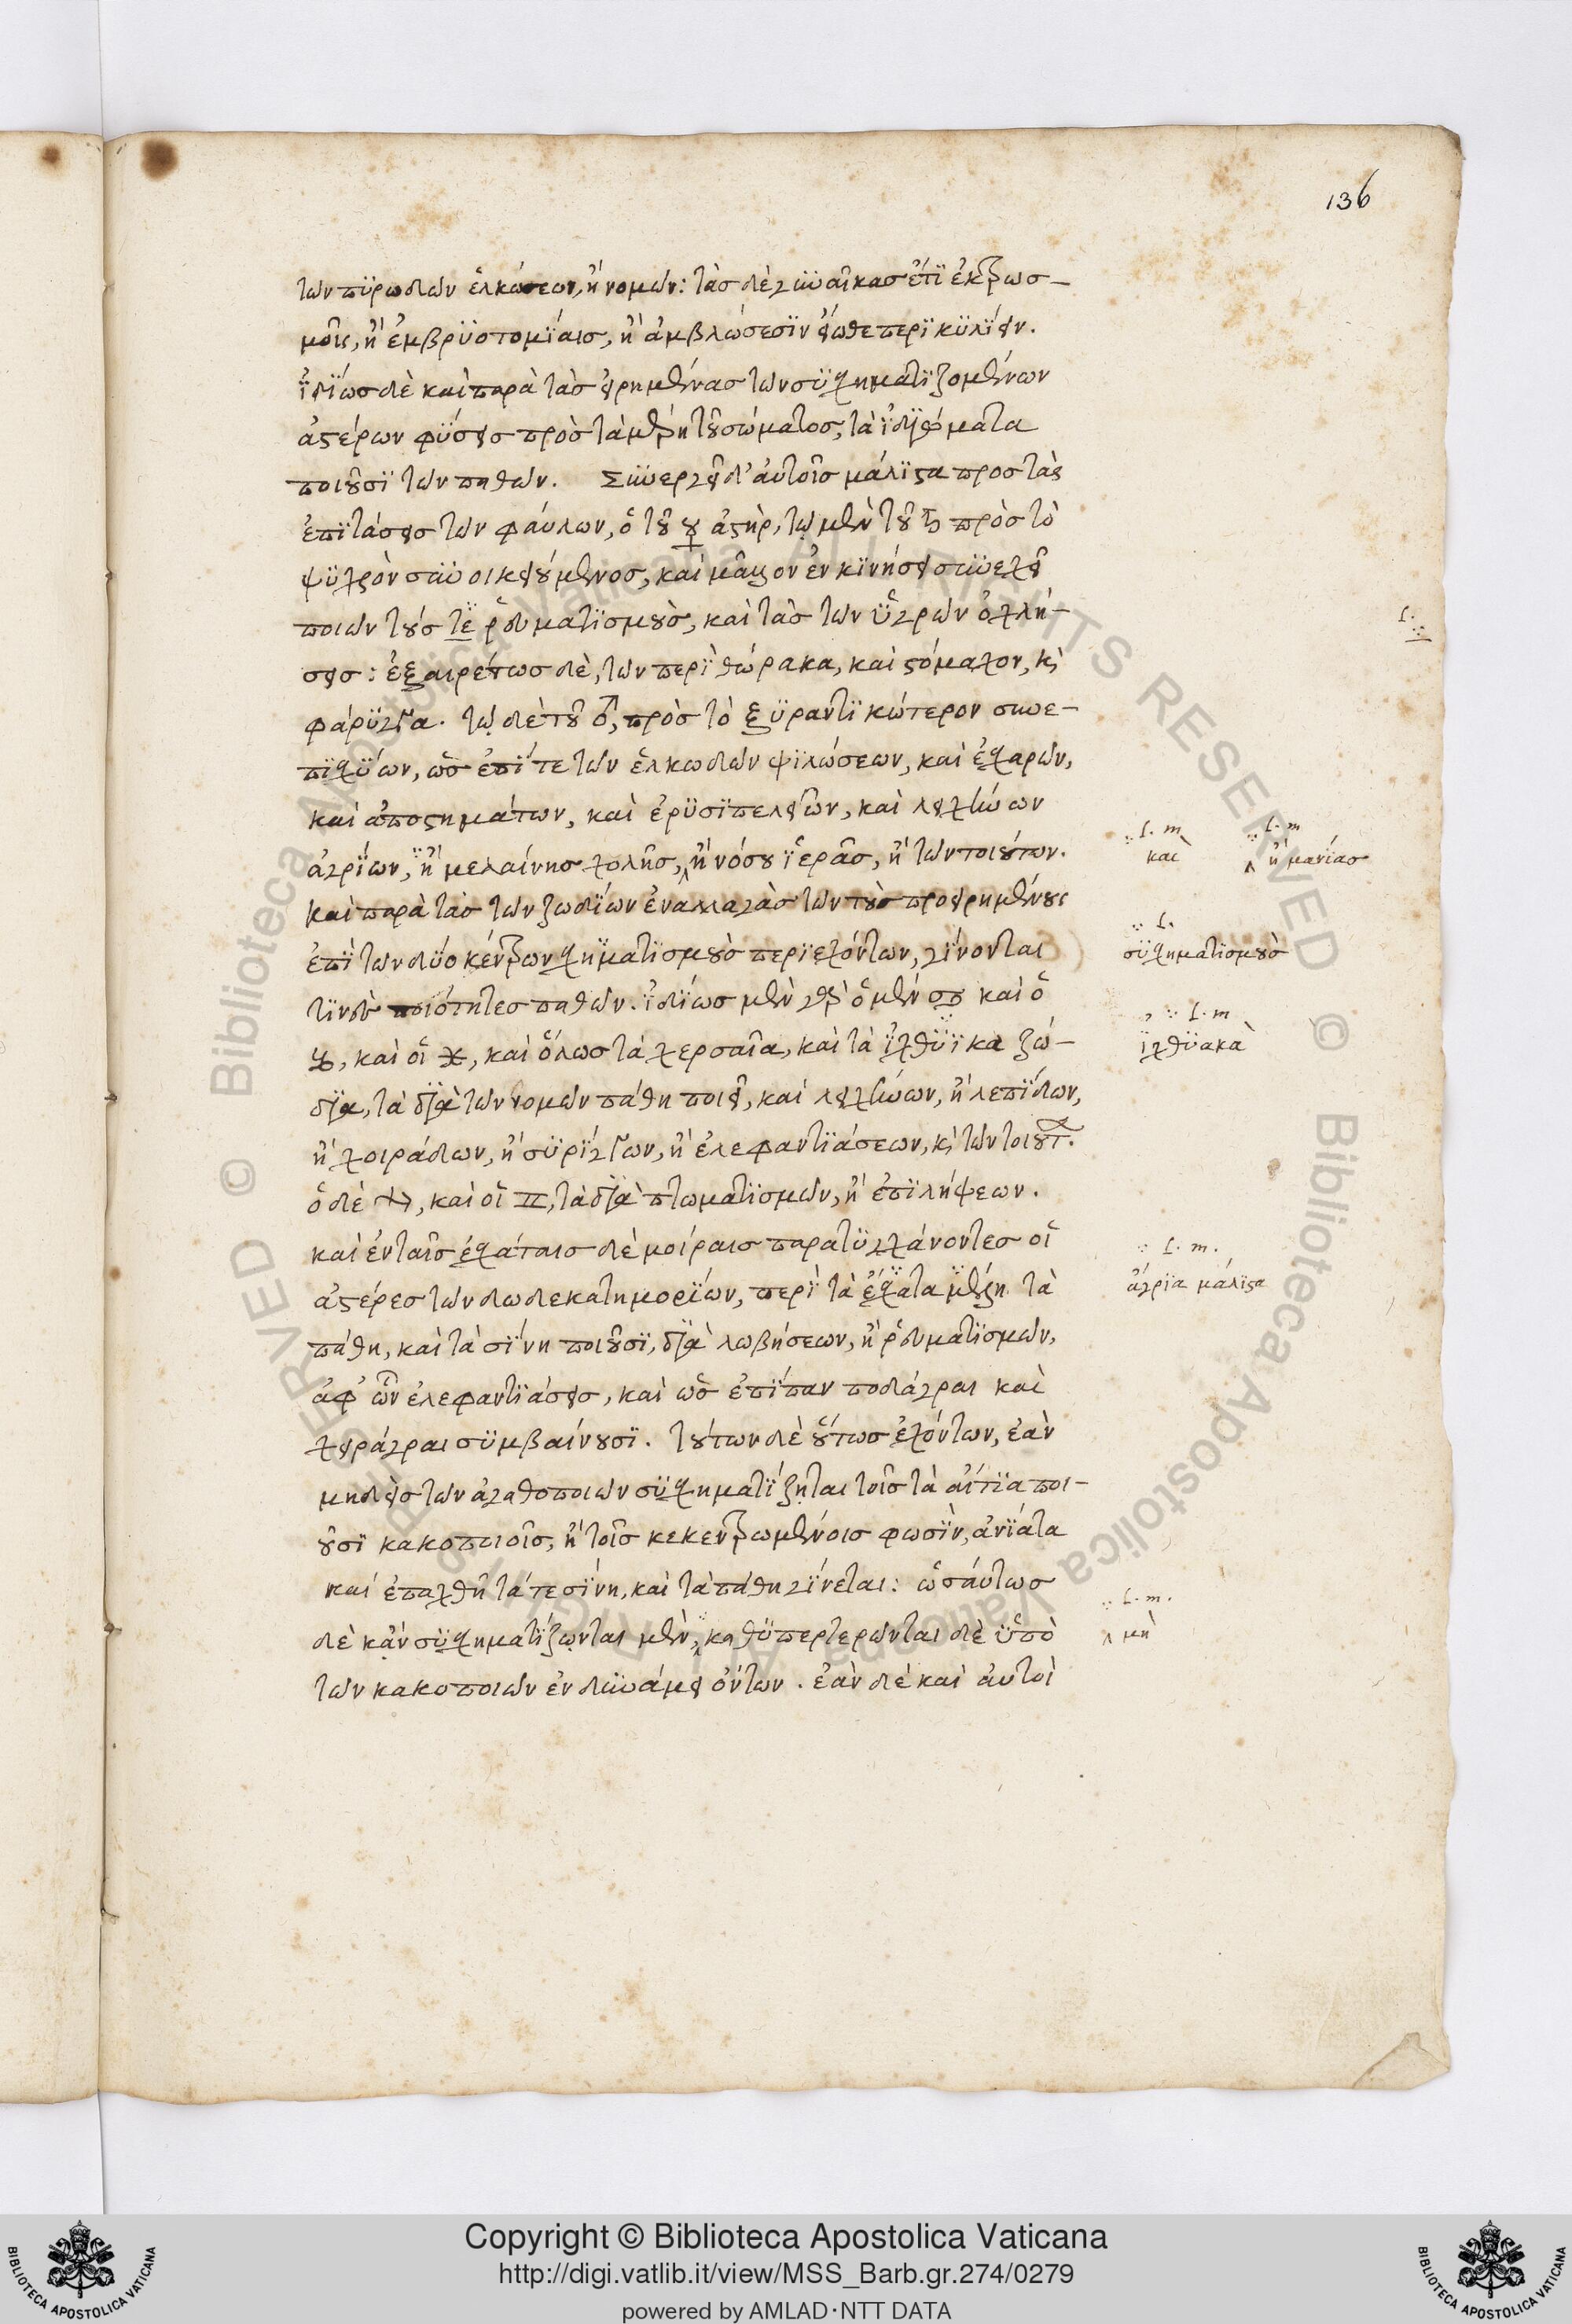 136
τῶν πυρωδῶν ἑλκώσεων, ἢ νομῶν: τὰς δὲ γυναῖκας ἔτι ἐκτρωσ-
μοῖς, ἢ ἐμβρυοτομίαις, ἢ ἀμβλώσεσιν εἴωθε περικυλίειν.
ἰδίως δὲ καὶ παρὰ τὰς εἰρημένας τῶν συσχηματιζομένων
ἀστέρων φύσεις πρὸς τὰ μέρη τοῦ σώματος, τὰ ἰδιώματα
ποιοῦσι τῶν παθῶν. Συνεργεῖ δ' αὐτοῖς μάλιστα πρὸς τὰς
ἐπιτάσεις τῶν φαύλων, ὁ τοῦ ☿ ἀστὴρ, τῷ μὲν τοῦ ♄ πρὸς τὸ
ψυχρὸν συνοικειούμενος, καὶ μᾶλλον ἐν κινήσει συνεχεῖ
ποιῶν τούς τε ῥευματισμοὺς, καὶ τὰς τῶν ὑγρῶν ὀχλή-
σεις: ἐξαιρέτως δὲ, τῶν περὶ θώρακα, καὶ στόμαχον, κὶ
φάρυγγα. τῷ δὲ τοῦ ♂, πρὸς τὸ ξυραντικώτερον συνε-
πισχύων, ὡς ἐπί τε τῶν ἑλκωδῶν ψιλώσεων, καὶ ἐσχαρῶν,
καὶ ἀποστημάτων, καὶ ἐρυσιπελείων, καὶ λειχήνων
ἀγρίων, ἢ μελαίνης χολῆς, ἢ νόσου ἱερᾶς, ἢ τῶν τοιούτων.
καὶ παρὰ τὰς τῶν ζωδίων ἐναλλαγὰς τῶν τοὺς προειρημένους
ἐπὶ τῶν δύο κέντρων σχηματισμοὺς περιεχόντων, γίνονται
τινὲς ποιότητες παθῶν. ἰδίως μὲν γὰρ ὁ μὲν ♋ καὶ ὁ
♑, καὶ οἱ ♓, καὶ ὅλως τὰ χερσαῖα, καὶ τὰ ἰχθυϊκὰ ζώ-
δια, τὰ διὰ τῶν νομῶν πάθη ποιεῖ, καὶ λειχήνων, ἢ λεπίδων,
ἢ χοιράδων, ἢ συρίγγων, ἢ ἐλεφαντιάσεων, κὶ τῶν τοιούτ.
ὁ δὲ ♐, καὶ οἱ ♊, τὰ διὰ πτωματισμῶν, ἢ ἐπιλήψεων.
καὶ ἐν ταῖς ἐσχάταις δὲ μοίραις παρατυγχάνοντες οἱ
ἀστέρες τῶν δωδεκατημορίων, περὶ τὰ ἔσχατα μέρη τὰ
πάθη, καὶ τὰ σίνη ποιοῦσι, διὰ λωβήσεων, ἢ ῥευματισμῶν,
ἀφ' ὧν ἐλεφαντιάσεις, καὶ ὡς ἐπίπαν ποδάγραι καὶ
χειράγραι συμβαίνουσι. τούτων δὲ οὕτως ἐχόντων, ἐὰν
μηδεὶς τῶν ἀγαθοποιῶν συσχηματίζηται τοῖς τὰ αἴτια ποι-
οῦσι κακοποιοῖς, ἢ τοῖς κεκεντρωμένοις φωσὶν, ἀνίατα
καὶ ἐπαχθῆ τά τε σίνη, καὶ τὰ πάθη γίνεται: ὡσαύτως
δὲ κἂν συσχηματίζωνται μὲν, καθυπερτερῶνται δὲ ὑπὸ
τῶν κακοποιῶν ἐν δυνάμει ὄντων. ἐὰν δὲ καὶ αὐτοὶ
L.
L. m
καὶ
L. m
ἢ μανίας
L.
συσχηματισμοὺς
L. m
ἰχθυακὰ
L. m.
ἄγρια μάλιστα
L. m.
μὴ
Copyright © Biblioteca Apostolica Vaticana
http://digi.vatlib.it/view/MSS_Barb.gr.274/0279
powered by AMLAD·NTT DATA